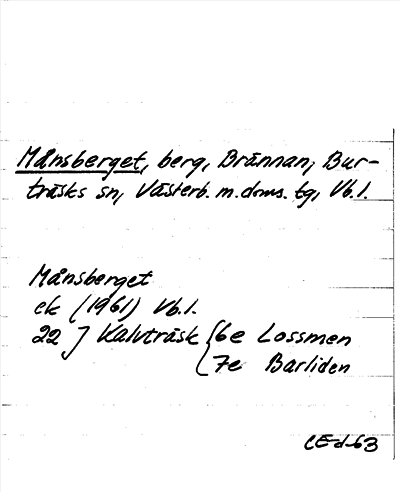 Månsberget, berg, Brännan, Bur-
träsks sn, Västerb. m. doms. tg, Vb. l.
Månsberget
ek (1961) Vb. l.
22 J Kalvträsk { 6e Lossmen
7e Barliden
CEd-63